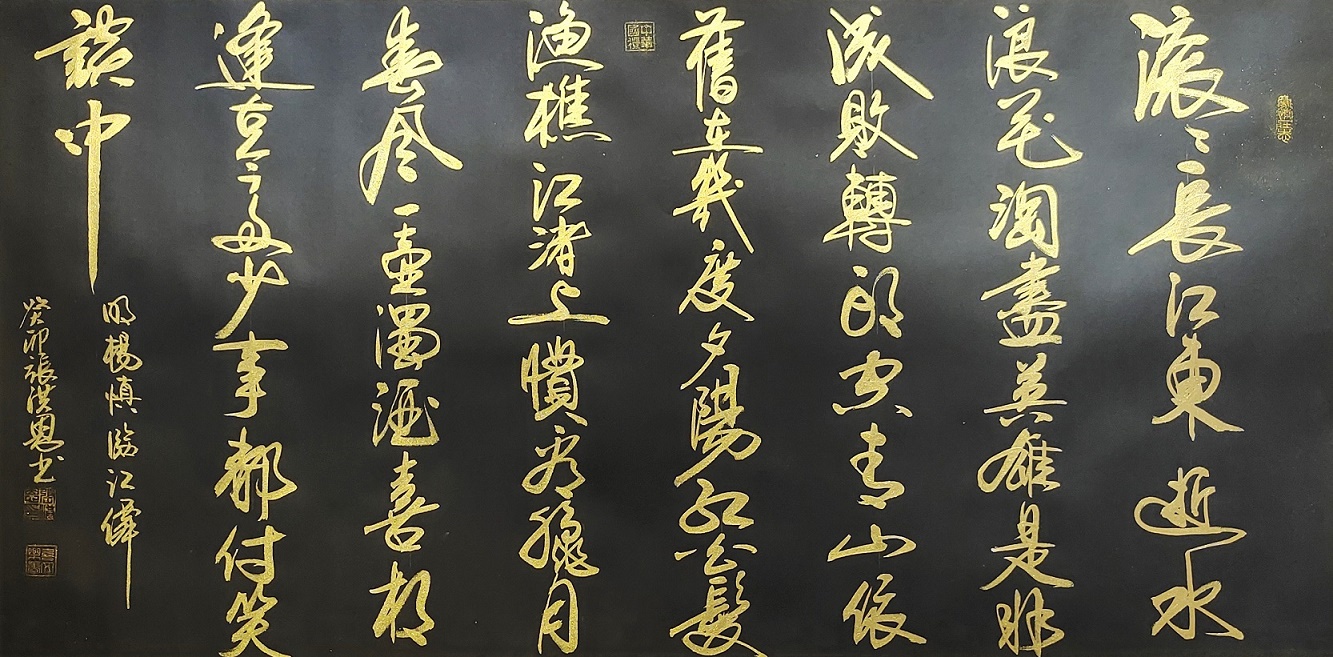 滚〻長江東逝水
浪花淘盡英雄是非
成敗轉頭空青山依
舊在幾度夕陽红白髮
漁樵江渚上慣看穐月
春风一壺濁酒喜相
逢古今多少事都付笑
談中
明楊慎臨江僊
癸卯張洪恩书